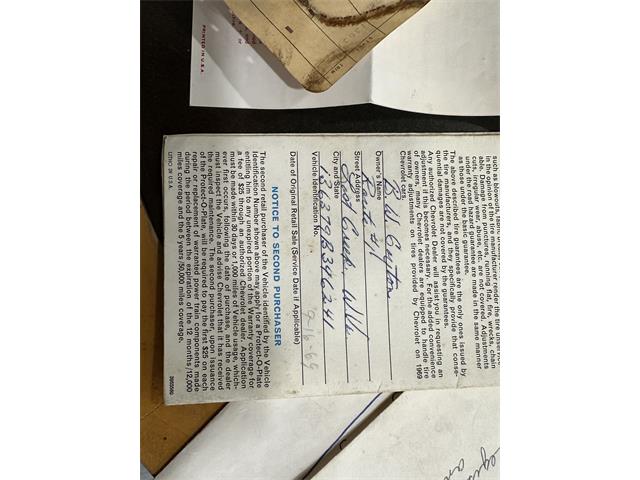 PRINTED IN U.S.A.
such as blowouts, fabric
in the opinion of the tire manufacturer render the tire unservice-
able. Damage from punctures, running flat, fire, wrecks, chain
cuts, irregular wear, abuse, etc. are not covered. Adjustments
under the road hazard guarantee are made in the same manner
as those under the basic guarantee.
The above described tire guarantees are the only ones issued by
the tire manufacturers, and they specifically provide that conse-
quential damages are not covered by the guarantees.
Any authorized Chevrolet Dealer will assist you in requesting an
adjustment if this becomes necessary. For the added convenience
of owners, many Chevrolet dealers are equipped to handle tire
warranty adjustments on tires provided by Chevrolet on 1969
Chevrolet cars.
Owner's Name
Route #1
Street Address
City and State
136379B346241
Vehicle Identification No.
9-16-69
Date of Original Retail Sale (Service Date if Applicable)
NOTICE TO SECOND PURCHASER
The second retail purchaser of the Vehicle identified by the Vehicle
Identification Number shown above may apply for a Protect-O-Plate
entitling him to any unexpired portion of the Warranty coverage for
a fee of $25 through an authorized Chevrolet dealer. Application
must be made within 30 days or 1,000 miles of Vehicle usage, which-
ever first occurs, following the date of purchase, and the dealer
must inspect the Vehicle and advise Chevrolet that it has received
the required maintenance. The second purchaser, upon issuance
of the Protect-O-Plate, will be required to pay the first $25 on each
repair or replacement of warranted power train components made
during the period between the expiration of the 12 months/12,000
miles coverage and the 5 years/50,000 miles coverage.
LITHO IN U.S.A.